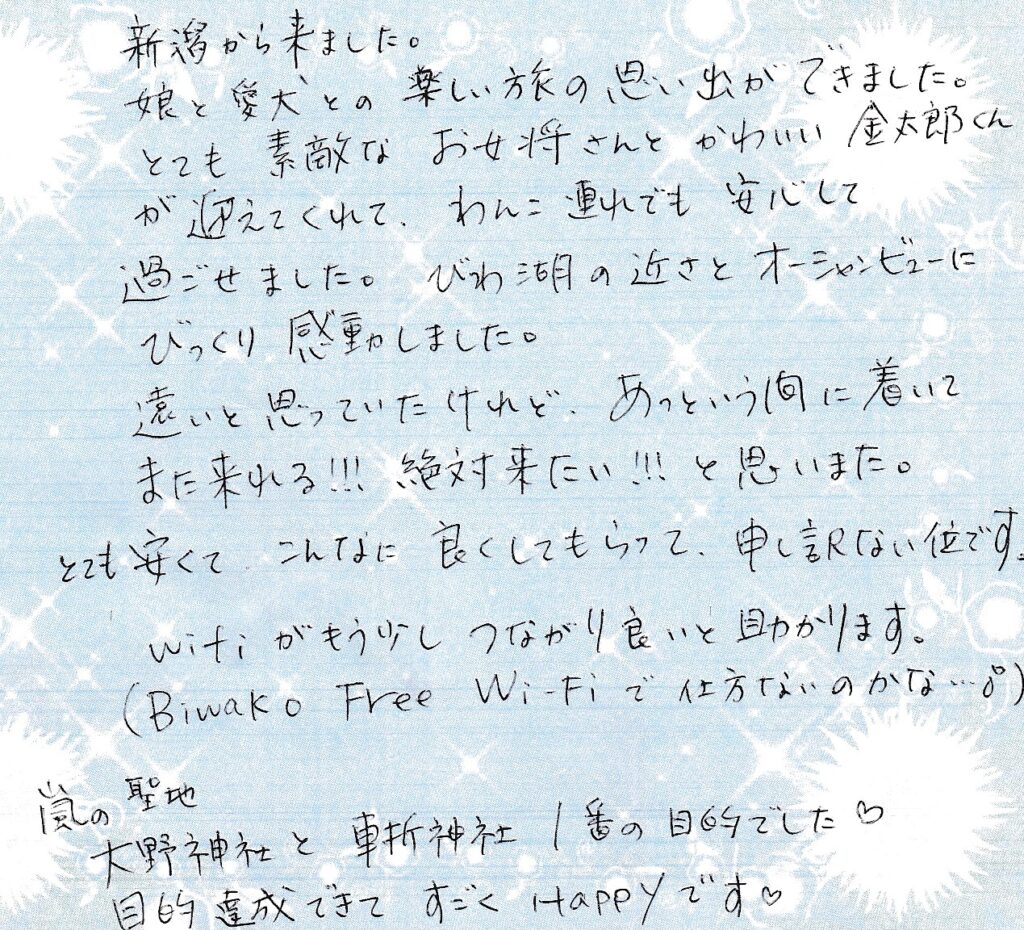 新潟から来ました。
娘と愛犬との楽しい旅の思い出ができました。
とても素敵なお女将さんとかわいい金太郎くん
が迎えてくれて、わんこ連れでも安心して
過ごせました。びわ湖の近さとオーシャンビューに
びっくり感動しました。
遠いと思っていたけれど、あっという間に着いて
また来れる!!!絶対来たい!!!と思いまた。
とても安くてこんなに良くしてもらって、申し訳ない位です。
wifiがもう少しつながり良いと助かります。
(Biwako Free Wi-Fiで仕方ないのかな…。)
嵐の聖地
大野神社と車折神社1番の目的でした♡
目的達成できてすごくHappyです♡